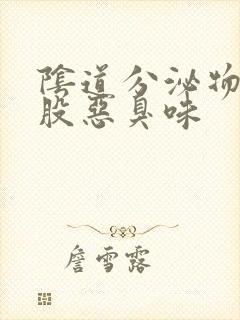 陰道分泌物
股惡臭味
詹雪露